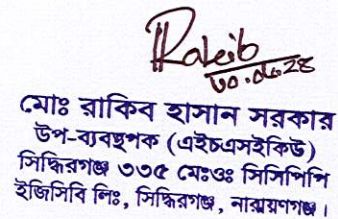 Rakib
৩০.০৬.২৪
মোঃ রাকিব হাসান সরকার
উপ-ব্যবস্থাপক (এইচএসইকিউ)
সিদ্ধিরগঞ্জ ৩৩৫ মেঃওঃ সিসিপিপি
ইজিসিবি লিঃ, সিদ্ধিরগঞ্জ, নারায়ণগঞ্জ।